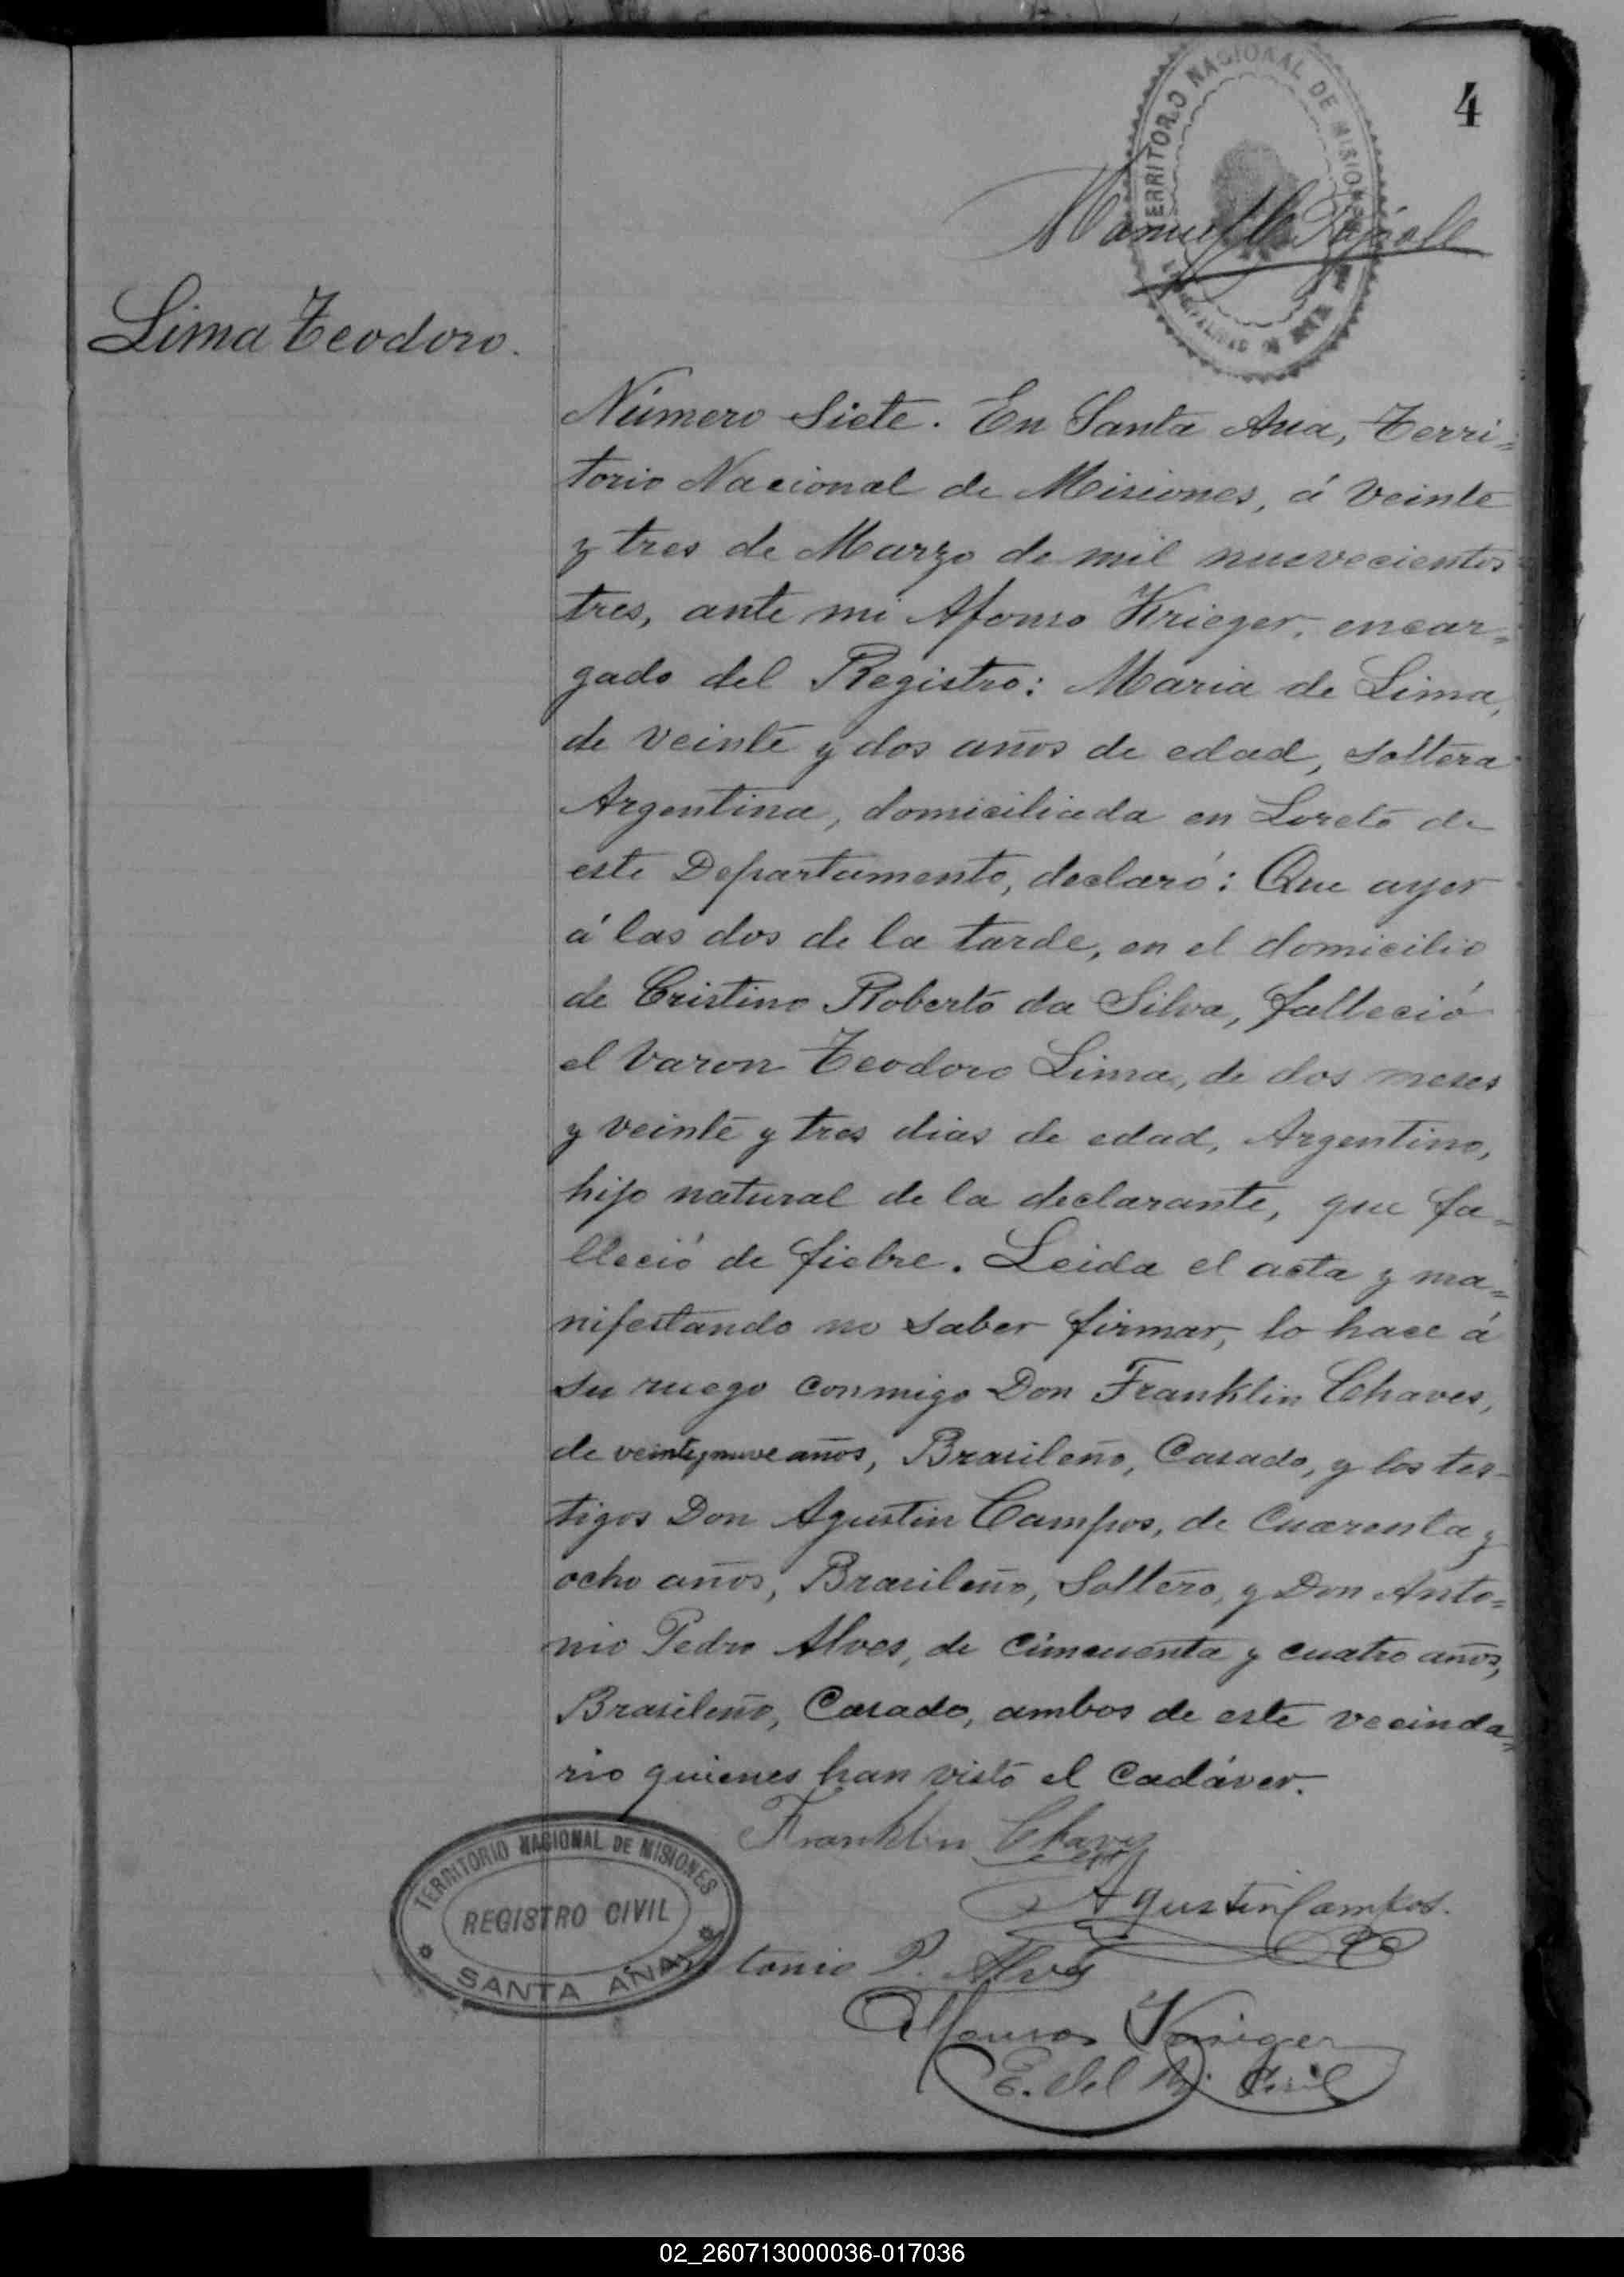 4
TERRITORIO NACIONAL DE MISIONES
Manuel
Lima Teodoro.
Número Siete. En Santa Ana, Terri=
torio Nacional de Misiones, á veinte
y tres de Marzo de mil nuevecientos
tres, ante mi Afonso Krieger, encar=
gado del Registro: Maria de Lima,
de veinte y dos años de edad, soltera
Argentina, domiciliada en Loreto de
este Departamento, declaró: Que ayer
á las dos de la tarde, en el domicilio
de Cristino Roberto da Silva, falleció
el varon Teodoro Lima, de dos meses
y veinte y tres dias de edad, Argentino,
hijo natural de la declarante, que fa=
lleció de fiebre. Leida el acta y ma=
nifestando no saber firmar, lo hace á
su ruego conmigo Don Franklin Chaves,
de veinteynueve años, Brasileño, Casado, y los tes-
tigos Don Agustin Campos, de Cuarenta y
ocho años, Brasileño, Soltero, y Don Anto=
nio Pedro Alves, de cimcuenta y cuatro años,
Brasileño, Casado, ambos de este vecinda=
rio quienes han visto el Cadáver.
Franklin Chaves
TERRITORIO NACIONAL DE MISIONES
REGISTRO CIVIL
SANTA ANA
Agustin Campos.
Antonio P. Alves
Alfonso Krieger
E. del R. Civil
02_260713000036-017036